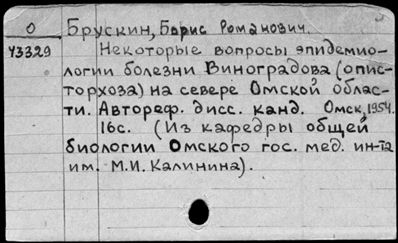 О Брускин, Борис Романович.
43329 Некоторые вопросы эпидемио-
логии болезни Виноградова (опис-
торхоза) на севере Омской облас-
ти. Автореф. дисс. канд. Омск, 1954.
16с. (Из кафедры общей
биологии Омского гос. мед. ин-та
им. М.И. Калинина).